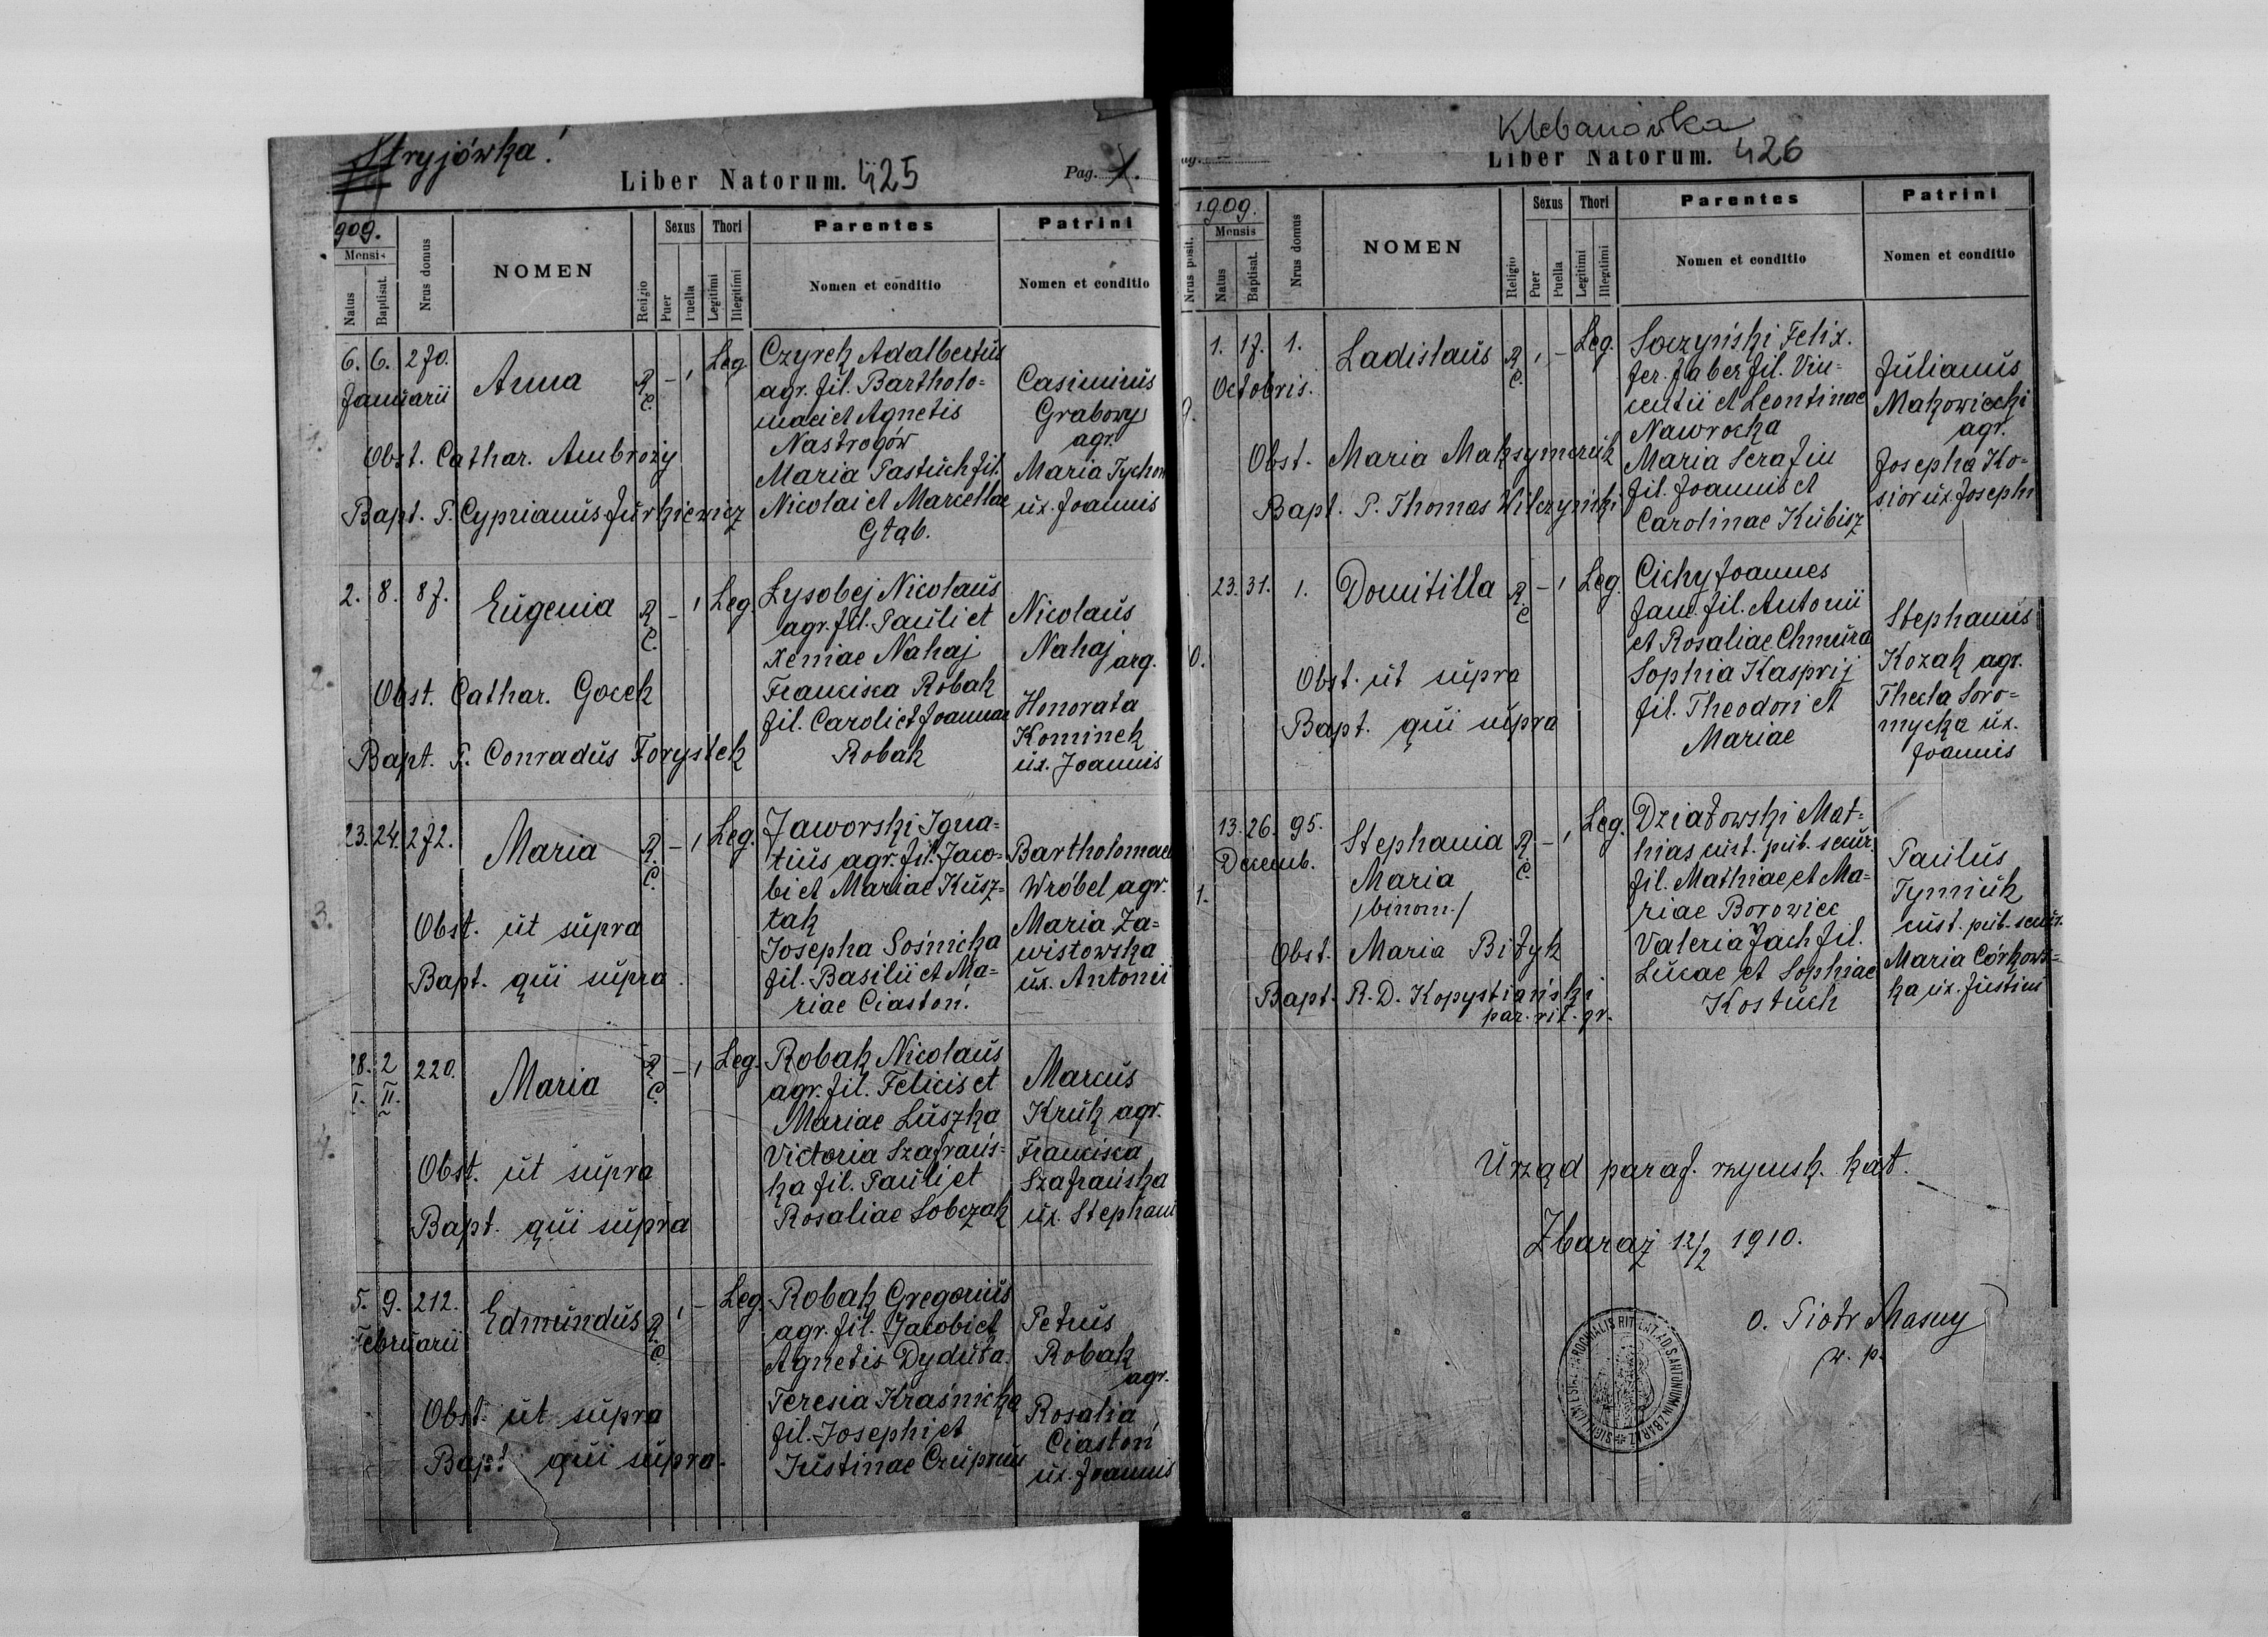 Stryjówka!
Liber Natorum. 425
Pag. 1.
909.
Mensis
Natus
Baptisat.
Nrus domus
NOMEN
Religio
Sexus
Puer
Puella
Thori
Legitimi
Illegitimi
Parentes
Nomen et conditio
Patrini
Nomen et conditio
1.
6. 6. 270.
Januarii
Anna
R. C. - 1 Leg.
Czyrek Adalbertus
agr. fil. Bartholo=
maei et Agnetis
Nastrogów
Maria Pastuch fil.
Nicolai et Marcellae
Głąb.
Casimirus
Grabowy
agr.
Maria Tychon
ux. Joannis
Obst. Cathar. Ambroży
Bapt. P. Cyprianus Jurkiewicz
2.
2. 8. 87.
Eugenia
R. C. - 1 Leg.
Łysobej Nicolaus
agr. fil. Pauli et
Xeniae Nahaj
Francisca Robak
fil. Caroli et Joannae
Robak
Nicolaus
Nahaj arg.
Honorata
Kominek
ux. Joannis
Obst. Cathar. Gocek
Bapt. P. Conradus Forystek
3.
23. 24. 272.
Maria
R. C. - 1 Leg.
Jaworski Igna=
tius agr. fil. Jaco=
bi et Mariae Kusz=
tak
Josepha Sośnicka
fil. Basilii et Ma=
riae Ciastoń.
Bartholomaeus
Wróbel agr.
Maria Za=
wistowska
ux. Antonii
Obst. ut supra
Bapt. qui supra.
4.
28. 2 220.
I. II.
Maria
R. C. - 1 Leg.
Robak Nicolaus
agr. fil. Felicis et
Mariae Luszka
Victoria Szafrańs=
ka fil. Pauli et
Rosaliae Sobczak
Marcus
Kruk agr.
Francisca
Szafrańska
ux. Stephani
Obst. ut supra
Bapt. qui supra
5. 9. 212.
Februarii
Edmundus
R. C. 1 - Leg.
Robak Gregorius
agr. fil. Jacobi et
Agnetis Dyduła.
Teresia Kraśnicka
fil. Josephi et
Justinae
Petrus
Robak
agr.
Rosalia
Ciastoń
ux. Joannis
Obst. ut supra
Bapt. qui supra.
Klebanówka
Liber Natorum. 426
ag.
1909.
Nrus posit.
Mensis
Natus
Baptisat.
Nrus domus
NOMEN
Religio
Sexus
Puer
Puella
Thori
Legitimi
Illegitimi
Parentes
Nomen et conditio
Patrini
Nomen et conditio
9.
1. 17. 1.
Octobris.
Ladislaus
R. C. 1 - Leg.
Soczyński Felix.
fer. faber fil. Vin=
centii et Leontinae
Nawrocka
Maria Serafin
fil. Joannis et
Carolinae Kubisz
Julianus
Makowiecki
agr.
Josepha Ko=
sior ux. Josephi
Obst. Maria Maksymczuk
Bapt. P. Thomas Wilczyński
0.
23. 31. 1.
Domitilla
R. C. - 1 Leg.
Cichy Joannes
fam. fil. Antonii
et Rosaliae Chmura
Sophia Kasprij
fil. Theodori et
Mariae
Stephanus
Kozak agr.
Thecla Soro=
mycka ux.
Joannis
Obst. ut supra
Bapt. qui supra
1.
13. 26. 95.
Decemb.
Stephania
Maria
/binom./
R. C. - 1 Leg.
Dziatowski Mat=
hias cust. pub. secur.
fil. Mathiae et Ma=
riae Borowiec
Valeria Jach fil.
Lucae et Sophiae
Kostuch
Paulus
Tymiuk
cust. pub. secur.
Maria Córkows=
ka ux. Justini
Obst. Maria Bityk
Bapt. R. D. Kopystiański
par. rit. gr.
Urząd paraf. rzymsk. kat.
Zbaraż 12/2 1910.
o. Piotr Masny
w. p.